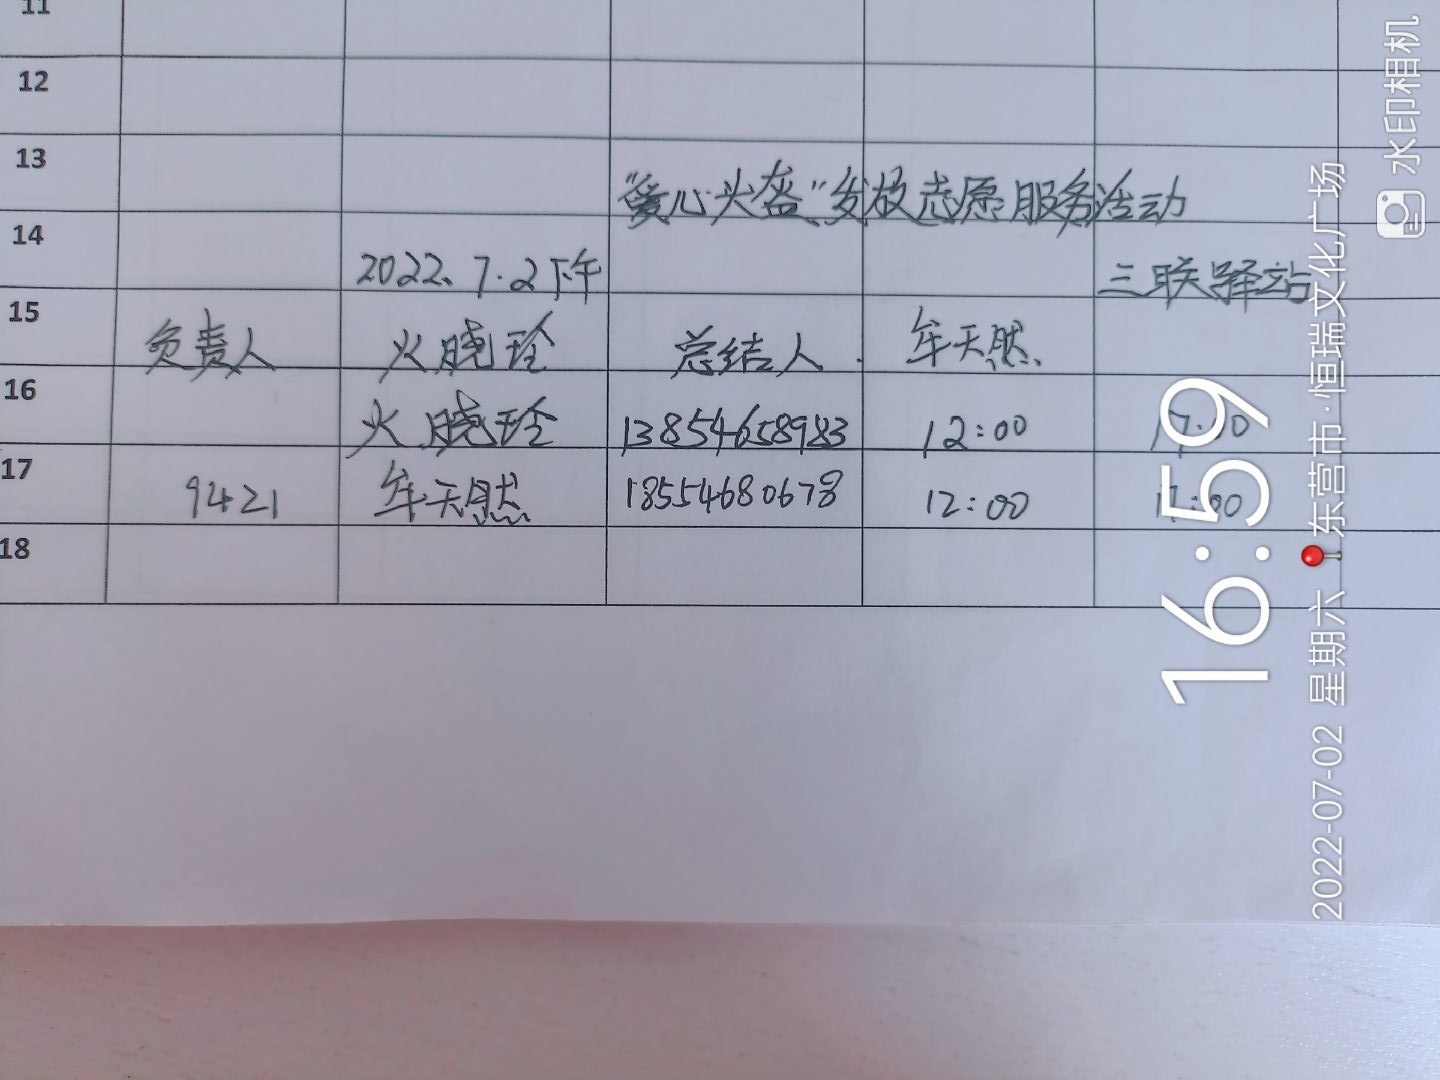 11
12
13
"爱心头盔"发放志愿服务活动
14
2022.7.2下午 三联驿站
15
负责人 火晓玲 总结人 牟天然
16
火晓玲 13854658983 12:00 17:00
17
9421 牟天然 18554680678 12:00 17:00
18
16:59
2022-07-02 星期六 东营市·恒瑞文化广场
水印相机